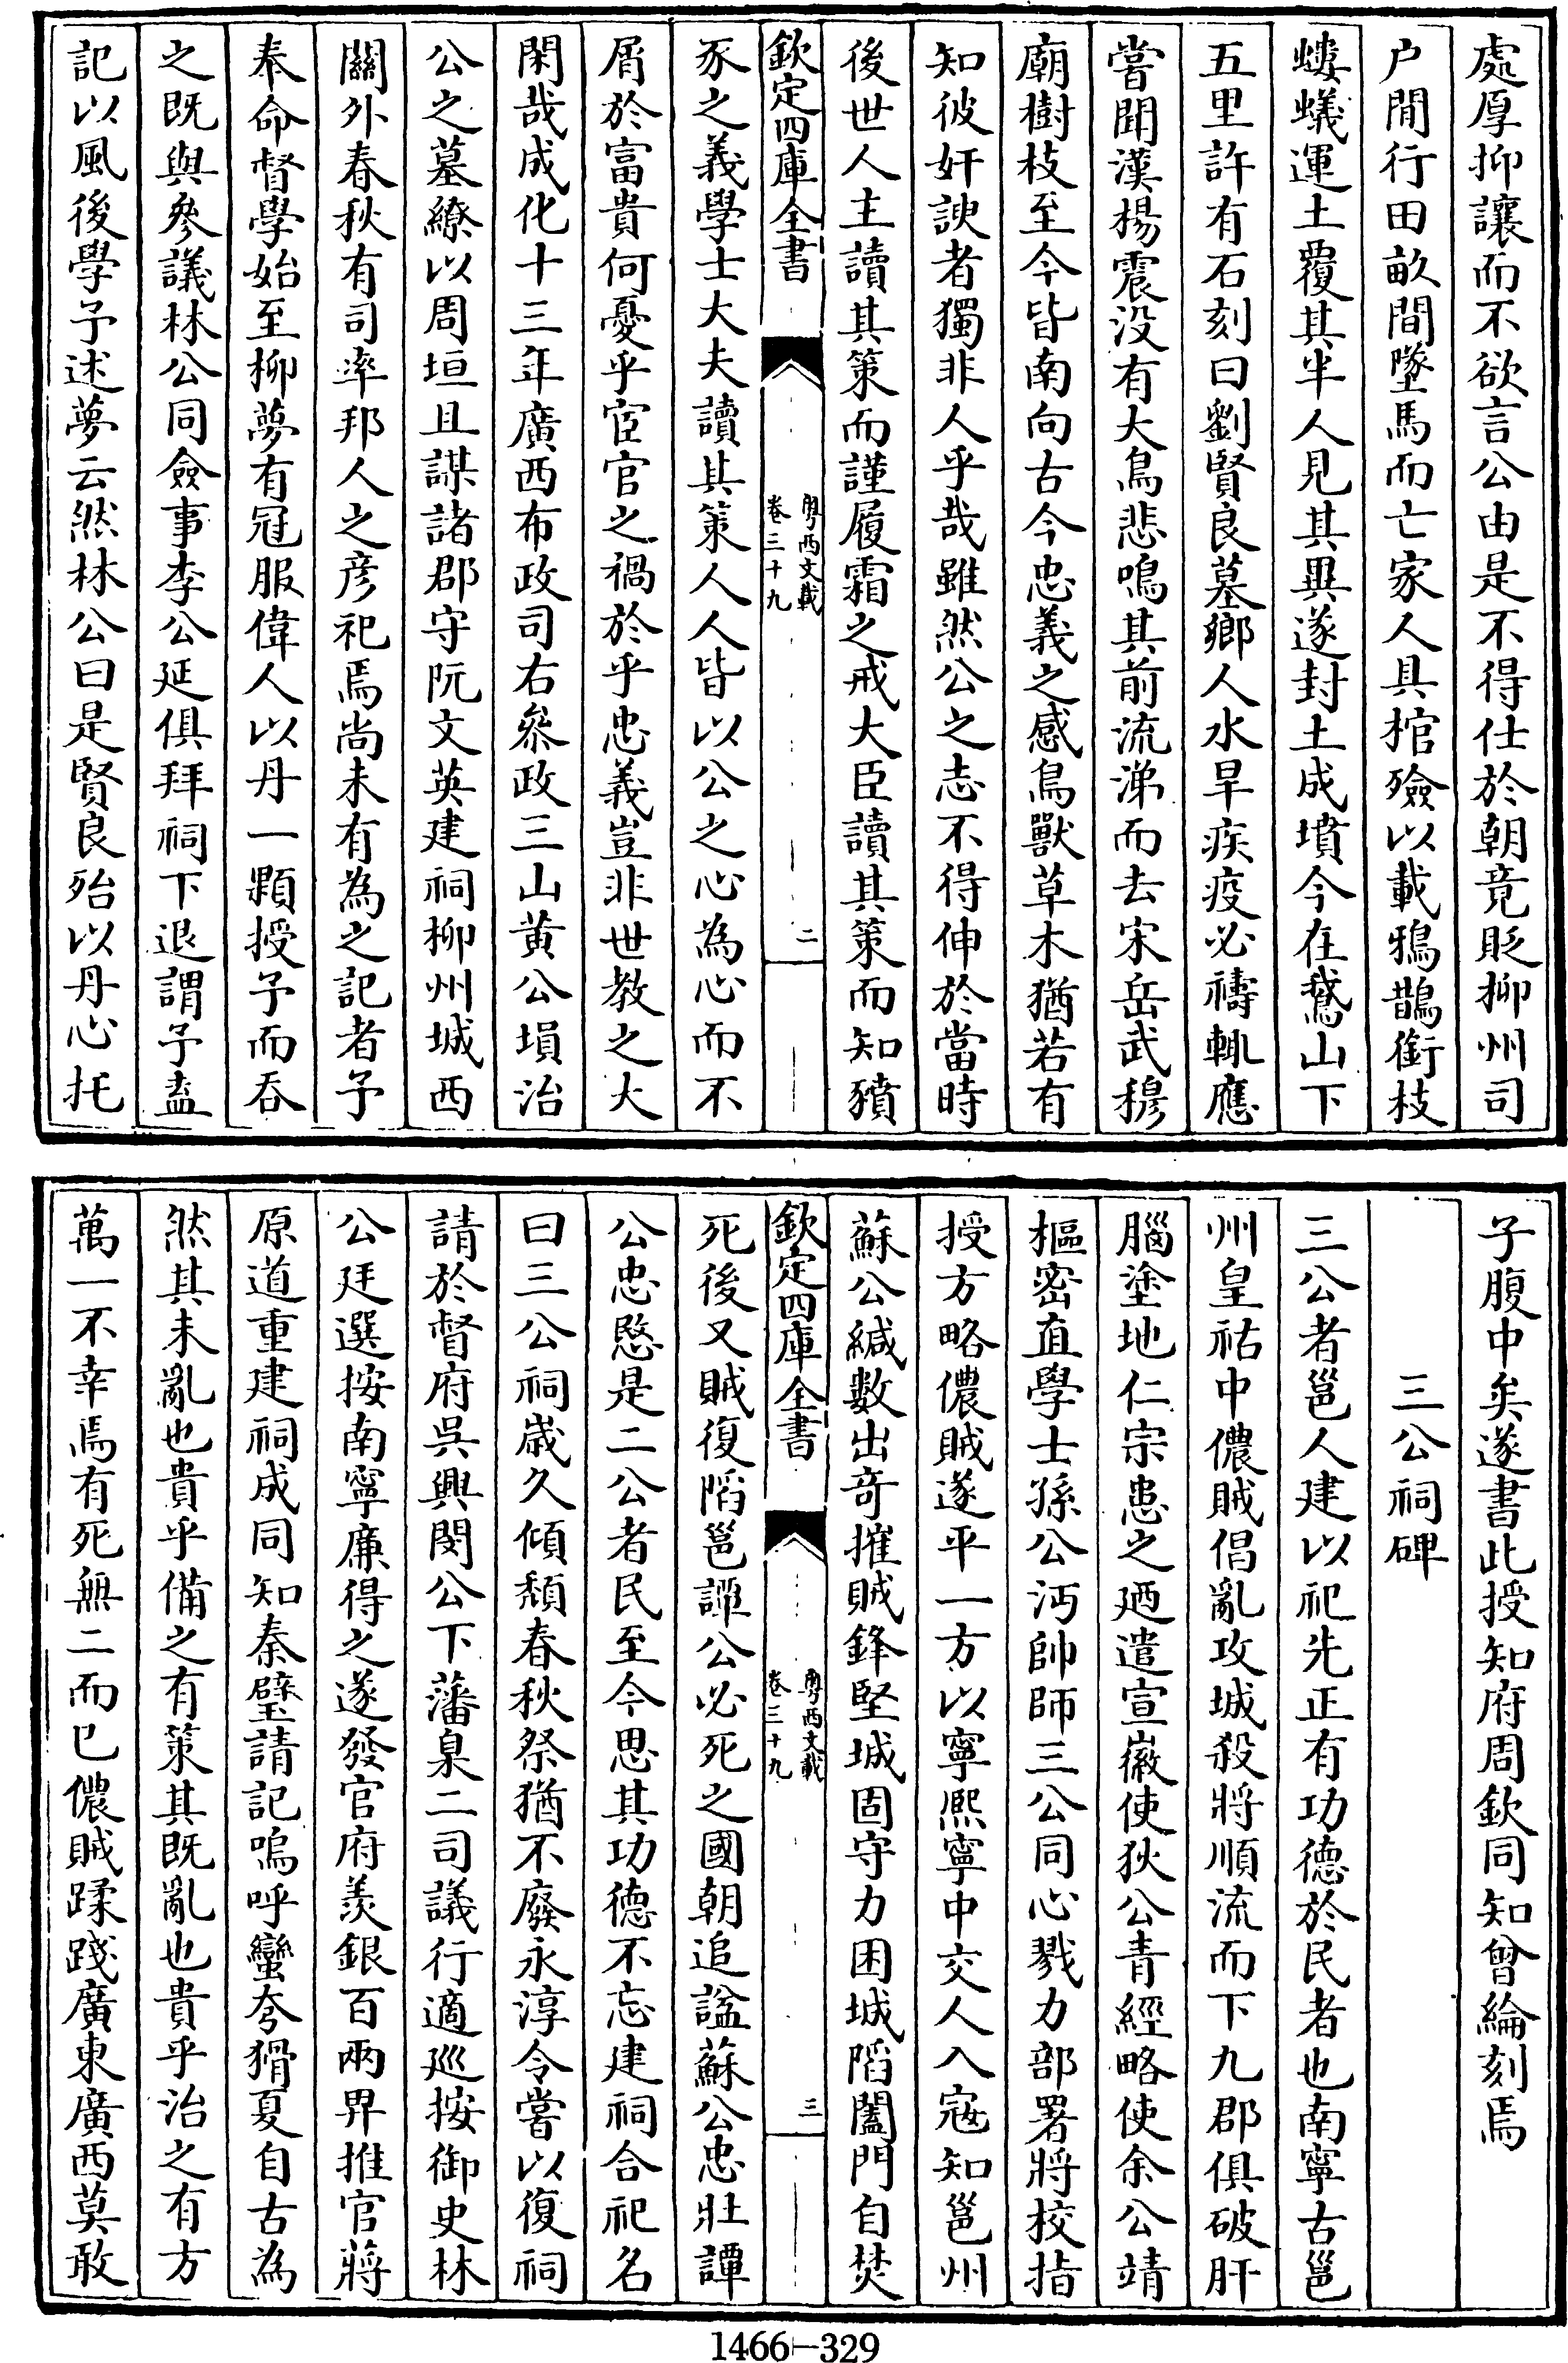 處厚抑讓而不欲言公由是不得仕於朝竟貶柳州司
户閒行田畝間墜馬而亡家人具棺殮以載鴉鵲銜枝
螻蟻運土覆其半人見其異遂封土成墳今在鵞山下
五里許有石刻曰劉賢良墓鄉人水旱疾疫必禱輒應
嘗聞漢楊震没有大鳥悲鳴其前流涕而去宋岳武穆
廟樹枝至今皆南向古今忠義之感鳥獸草木猶若有
知彼奸諛者獨非人乎哉雖然公之志不得伸於當時
後世人主讀其策而謹履霜之戒大臣讀其策而知豶
欽定四庫全書
粤西文載
卷三十九
二
豕之義學士大夫讀其策人人皆以公之心為心而不
屑於富貴何憂乎宦官之禍於乎忠義豈非世教之大
閑哉成化十三年廣西布政司右叅政三山黄公塤治
公之墓繚以周垣且謀諸郡守阮文英建祠柳州城西
關外春秋有司率邦人之彦祀焉尚未有為之記者予
奉命督學始至柳夢有冠服偉人以丹一顆授予而吞
之既與叅議林公同僉事李公延俱拜祠下退謂予盍
記以風後學予述夢云然林公曰是賢良殆以丹心托
子腹中矣遂書此授知府周欽同知曾綸刻焉
三公祠碑
三公者邕人建以祀先正有功德於民者也南寧古邕
州皇祐中儂賊倡亂攻城殺將順流而下九郡俱破肝
腦塗地仁宗患之廼遣宣徽使狄公青經略使余公靖
樞密直學士孫公沔帥師三公同心戮力部署將校指
授方略儂賊遂平一方以寧熙寧中交人入宼知邕州
蘇公緘數出奇摧賊鋒堅城固守力困城陷闔門自焚
欽定四庫全書
粤西文載
卷三十九
三
死後又賊復陷邕譚公必死之國朝追諡蘇公忠壯譚
公忠愍是二公者民至今思其功德不忘建祠合祀名
曰三公祠歲久傾頽春秋祭猶不廢永淳令嘗以復祠
請於督府吳興閔公下藩臬二司議行適廵按御史林
公廷選按南寧廉得之遂發官府羨銀百兩畀推官蔣
原道重建祠成同知秦璧請記嗚呼蠻夸猾夏自古為
然其未亂也貴乎備之有策其既亂也貴乎治之有方
萬一不幸焉有死無二而已儂賊蹂踐廣東廣西莫敢
1466-329